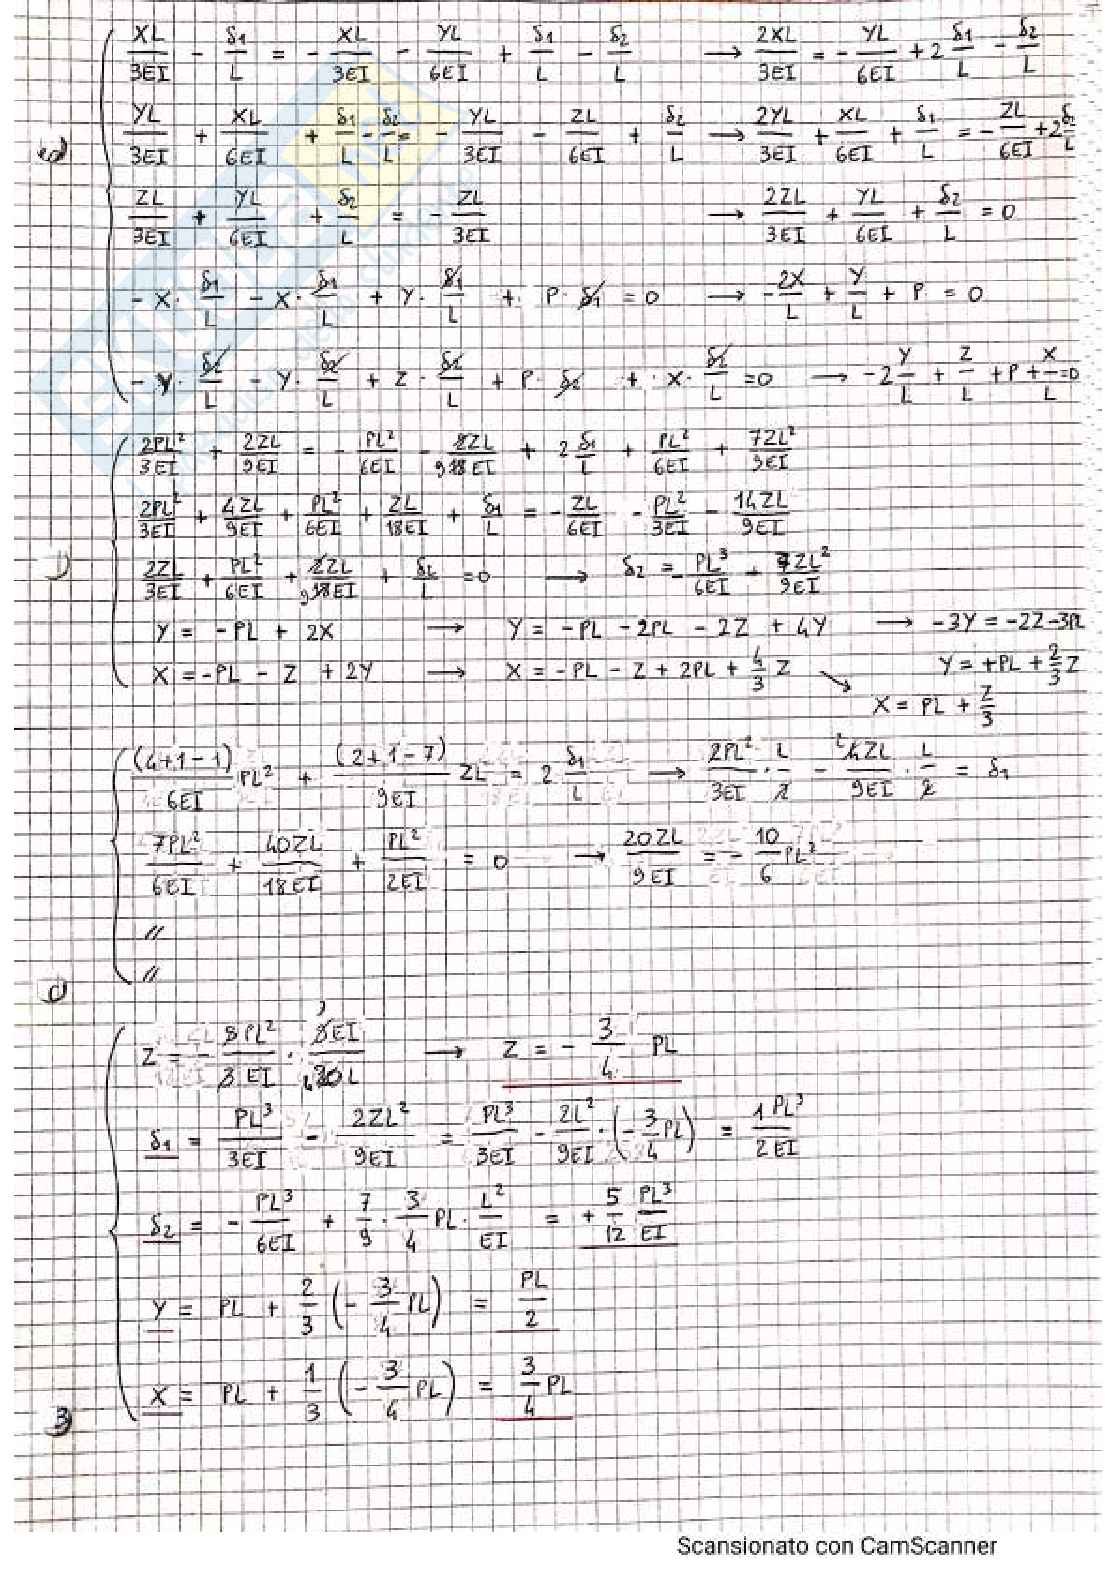 XL/3EI - δ1/L = - XL/3EI - YL/6EI + δ1/L - δ2/L → 2XL/3EI = - YL/6EI + 2 δ1/L - δ2/L
YL/3EI + XL/6EI + δ1/L - δ2/L = - YL/3EI - ZL/6EI + δ2/L → 2YL/3EI + XL/6EI + δ1/L = - ZL/6EI + 2 δ2/L
ZL/3EI + YL/6EI + δ2/L = - ZL/3EI → 2ZL/3EI + YL/6EI + δ2/L = 0
- X · δ1/L - X · δ1/L + Y · δ1/L + P · δ1 = 0 → - 2X/L + Y/L + P = 0
- Y · δ2/L - Y · δ2/L + Z · δ2/L + P · δ2 + X · δ2/L = 0 → - 2 Y/L + Z/L + P + X/L = 0
2PL²/3EI + 2ZL/9EI = - PL²/6EI - 2ZL/918EI + 2 δ1/L + PL²/6EI + 7ZL²/9EI
2PL²/3EI + 4ZL/9EI + PL²/6EI + ZL/18EI + δ1/L = - ZL/6EI - PL²/3EI - 14ZL/9EI
2ZL/3EI + PL²/6EI + 2ZL/918EI + δ2/L = 0 → δ2 = - PL³/6EI + 7ZL²/9EI
Y = - PL + 2X → Y = - PL - 2PL - 2Z + 4Y → - 3Y = - 2Z - 3PL
X = - PL - Z + 2Y → X = - PL - Z + 2PL + 4/3 Z Y = + PL + 2/3 Z
X = PL + Z/3
(4+1-1)/6EI PL² + (2+1-7)/9EI ZL = 2 δ1/L → 2PL²/3EI · L/2 - 4ZL/9EI · L/2 = δ1
7PL²/6EI + 40ZL/18EI + PL²/2EI = 0 → 20ZL/9EI = - 10/6 PL²
//
//
Z = - PL²/3EI · EI/L → Z = - 3/4 PL
δ1 = PL³/3EI - 2ZL²/9EI = PL³/3EI - 2L²/9EI · (- 3/4 PL) = 1PL³/2EI
δ2 = - PL³/6EI + 7/9 · 3/4 PL · L²/EI = + 5/12 PL³/EI
Y = PL + 2/3 (- 3/4 PL) = PL/2
X = PL + 1/3 (- 3/4 PL) = 3/4 PL
Scansionato con CamScanner